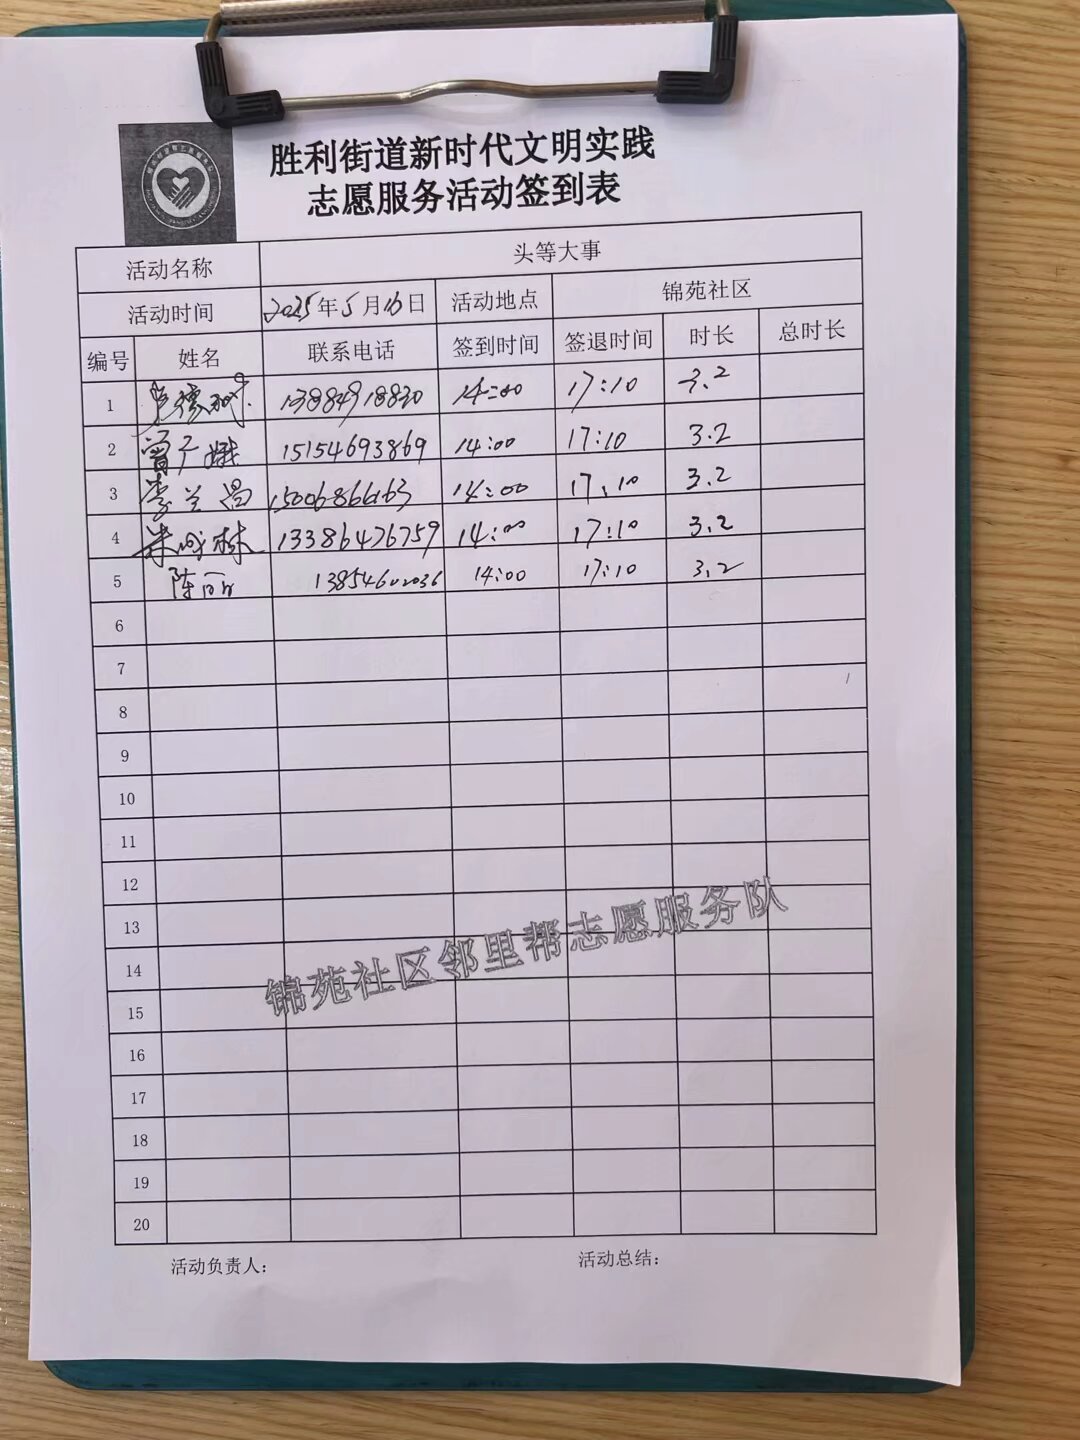 胜利街道新时代文明实践
志愿服务活动签到表
活动名称 头等大事
活动时间 2025年5月16日 活动地点 锦苑社区
编号 姓名 联系电话 签到时间 签退时间 时长 总时长
1 13884918830 14:00 17:10 3.2
2 曾广娥 15154693869 14:00 17:10 3.2
3 李兰昌 15006866163 14:00 17:10 3.2
4 13386476759 14:00 17:10 3.2
5 陈丽 13854602036 14:00 17:10 3.2
6
7
8
9
10
11
12
13
14
15
16
17
18
19
20
锦苑社区邻里帮志愿服务队
活动负责人： 活动总结：